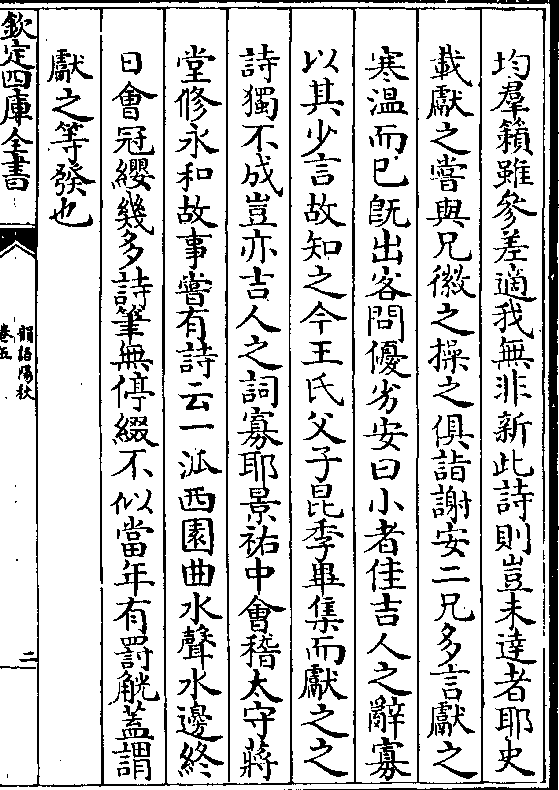 均羣籟雖參差適我無非新此詩則豈未達者耶史
載獻之嘗與兄徽之操之俱詣謝安二兄多言獻之
寒温而已旣出客問優劣安曰小者佳吉人之辭寡
以其少言故知之今王氏父子昆季畢集而獻之之
詩獨不成豈亦吉人之詞寡耶景祐中會稽太守蔣
堂修永和故事嘗有詩云一派西園曲水聲水邊終
日會冠纓幾多詩筆無停綴不似當年有罰觥蓋謂
獻之等發也
欽定四庫全書
韻語陽秋
卷五
二